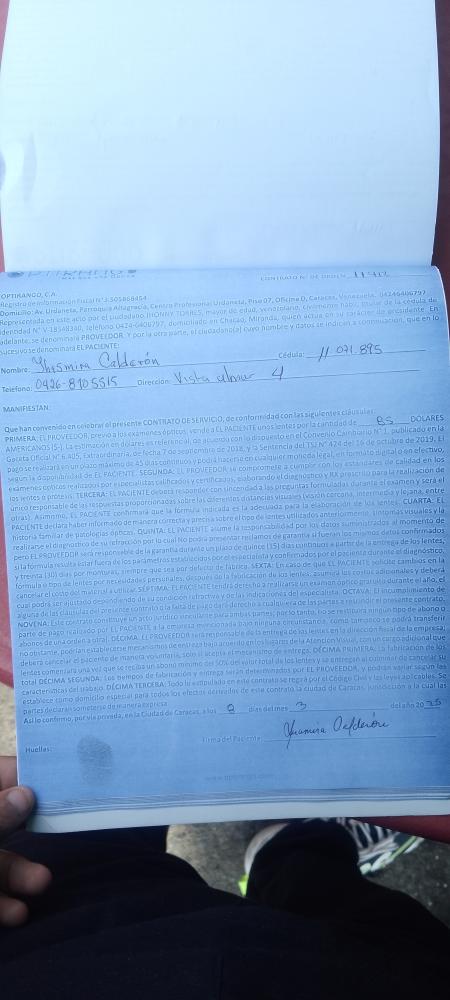 OPTIRANGO
CONTRATO N° DE ORDEN
OPTIRANGO, C.A.
Registro de Información Fiscal N° J-505868454
Domicilio: Av. Urdaneta, Parroquia Altagracia, Centro Profesional Urdaneta, Piso 07, Oficina D, Caracas, Venezuela. 04246406797
Representada en este acto por el ciudadano JHONNY TORRES, mayor de edad, venezolano, civilmente hábil, titular de la cédula de
identidad N° V-18548360, teléfono 0424-6406797, domiciliado en Chacao, Miranda, quien actúa en su carácter de presidente. En
adelante, se denominará PROVEEDOR. Y por la otra parte, el ciudadano(a) cuyo nombre y datos se indican a continuación, que en lo
sucesivo se denominará EL PACIENTE:
Nombre: Calderón Cédula: 11 071.895
Teléfono: 0426-8105515 Dirección: Vista 4
MANIFIESTAN:
Que han convenido en celebrar el presente CONTRATO DE SERVICIO, de conformidad con las siguientes cláusulas:
PRIMERA: EL PROVEEDOR, previo a los exámenes ópticos, vende a EL PACIENTE unos lentes por la cantidad de 85 DÓLARES
AMERICANOS ($-). La estimación en dólares es referencial, de acuerdo con lo dispuesto en el Convenio Cambiario N° 1, publicado en la
Gaceta Oficial N° 6.405, Extraordinaria, de fecha 7 de septiembre de 2018, y la Sentencia del TSJ N° 424 del 16 de octubre de 2019. El
pago se realizará en un plazo máximo de 45 días continuos y podrá hacerse en cualquier moneda legal, en formato digital o en efectivo,
según la disponibilidad de EL PACIENTE. SEGUNDA: EL PROVEEDOR se compromete a cumplir con los estándares de calidad en los
exámenes ópticos realizados por especialistas calificados y certificados, elaborando el diagnóstico y RX prescrito para la realización de
los lentes o prótesis. TERCERA: EL PACIENTE deberá responder con sinceridad a las preguntas formuladas durante el examen y será el
único responsable de las respuestas proporcionadas sobre las diferentes distancias visuales (visión cercana, intermedia y lejana, entre
otras). Asimismo, EL PACIENTE confirmará que la fórmula indicada es la adecuada para la elaboración de los lentes. CUARTA: EL
PACIENTE declara haber informado de manera correcta y precisa sobre el tipo de lentes utilizados anteriormente, síntomas visuales y la
historia familiar de patologías ópticas. QUINTA: EL PACIENTE asume la responsabilidad por los datos suministrados al momento de
realizarse el diagnóstico de su refracción por lo cual no podrá presentar reclamos de garantía si fueran los mismos datos confirmados
pero EL PROVEEDOR será responsable de la garantía durante un plazo de quince (15) días continuos a partir de la entrega de los lentes,
si la fórmula está fuera de los parámetros establecidos por el especialista y confirmados por el paciente durante el diagnóstico,
y treinta (30) días por monturas, siempre que sea por defecto de fábrica. SEXTA: En caso de que EL PACIENTE solicite cambios en la
fórmula o tipo de lentes por necesidades personales, después de la fabricación de los lentes, asumirá los costos adicionales y deberá
cancelar el costo del material a utilizar. SÉPTIMA: EL PACIENTE tendrá derecho a realizarse un examen óptico gratuito durante el año, el
cual podrá ser ajustado dependiendo de su condición refractiva y de las indicaciones del especialista. OCTAVA: El incumplimiento de
alguna de las cláusulas del presente contrato o la falta de pago dará derecho a cualquiera de las partes a rescindir el presente contrato.
NOVENA: Este contrato constituye un acto jurídico vinculante para ambas partes; por lo tanto, no se restituirá ningún tipo de abono o
parte de pago realizado por EL PACIENTE a la empresa mencionada bajo ninguna circunstancia, como tampoco se podrá transferir
abonos de una orden a otra. DÉCIMA: EL PROVEEDOR será responsable de la entrega de los lentes en la dirección fiscal de la empresa;
no obstante, podrían establecerse mecanismos de entrega bajo acuerdo en los lugares de la Atención Visual, con un cargo adicional que
deberá cancelar el paciente de manera voluntaria, solo si acepta el mecanismo de entrega. DÉCIMA PRIMERA: La fabricación de los
lentes comenzará una vez que se reciba un abono mínimo del 50% del valor total de los lentes y se entregan al culminar de cancelar su
total. DÉCIMA SEGUNDA: Los tiempos de fabricación y entrega serán determinados por EL PROVEEDOR, y podrán variar según las
características del trabajo. DÉCIMA TERCERA: Todo lo estipulado en este contrato se regirá por el Código Civil y las leyes aplicables. Se
establece como domicilio especial para todos los efectos derivados de este contrato la ciudad de Caracas, jurisdicción a la cual las
partes declaran someterse de manera expresa.
Así lo confirmo, por vía privada, en la Ciudad de Caracas, a los 8 días del mes 3 del año 2025
Firma del Paciente: Calderón
Huellas:
www.optirango.com